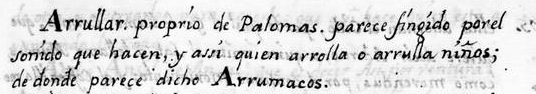 Arrullar. proprio de Palomas. parece fingido por el
sonido que hacen, y assi quien arrolla o arrulla niños;
de donde parece dicho Arrumacos.